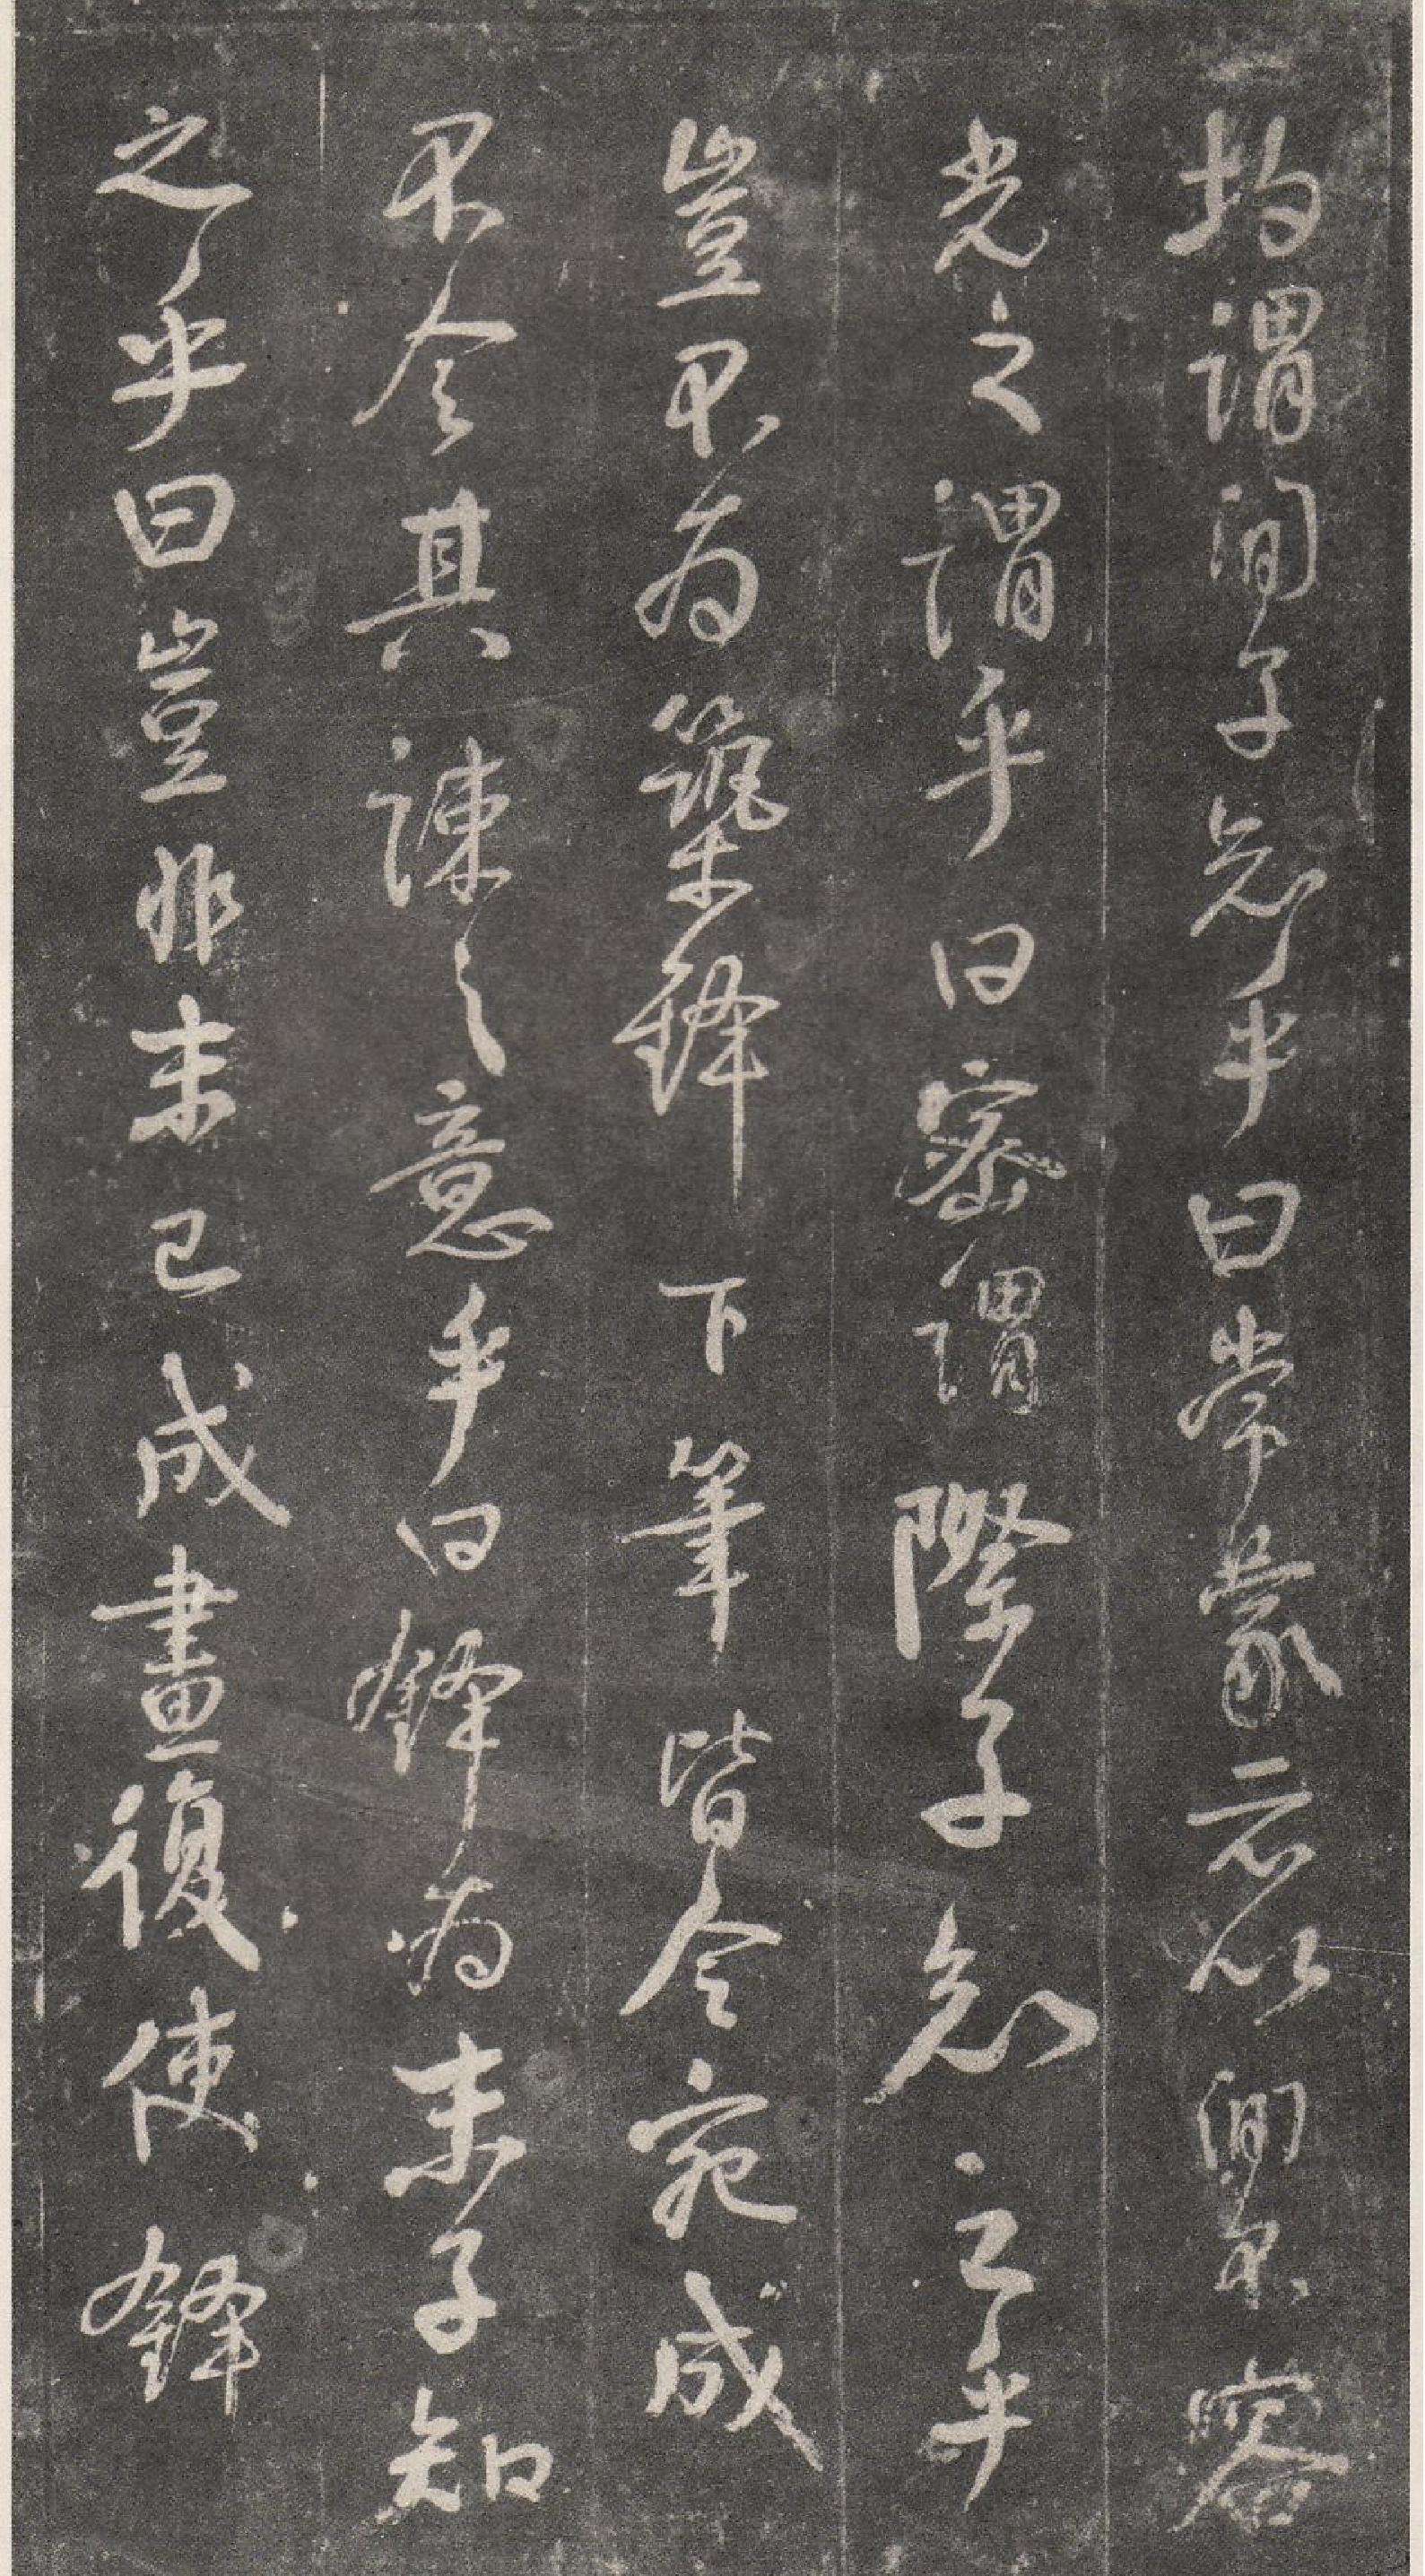 均謂間子知乎曰常蒙示以間不容
光之謂乎曰密謂際子知之乎
豈不为築鋒下筆皆令宛成
不令其疎之意乎曰鋒為末子知
之乎曰豈非末已成畫復使鋒